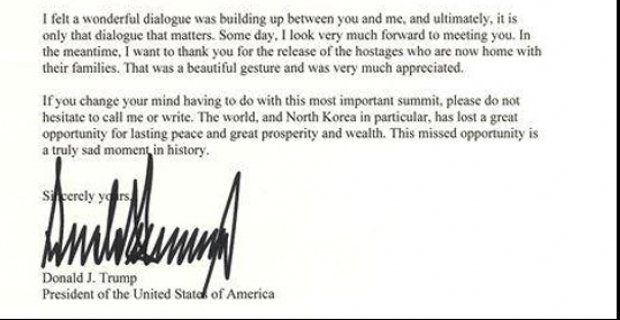 I felt a wonderful dialogue was building up between you and me, and ultimately, it is
only that dialogue that matters. Some day, I look very much forward to meeting you. In
the meantime, I want to thank you for the release of the hostages who are now home with
their families. That was a beautiful gesture and was very much appreciated.
If you change your mind having to do with this most important summit, please do not
hesitate to call me or write. The world, and North Korea in particular, has lost a great
opportunity for lasting peace and great prosperity and wealth. This missed opportunity is
a truly sad moment in history.
Sincerely yours,
Donald J. Trump
President of the United States of America